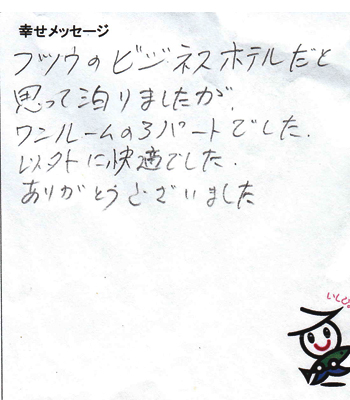 幸せメッセージ
フツウのビジネスホテルだと
思って泊りましたが、
ワンルームのアパートでした.
以外に快適でした.
ありがとうございました